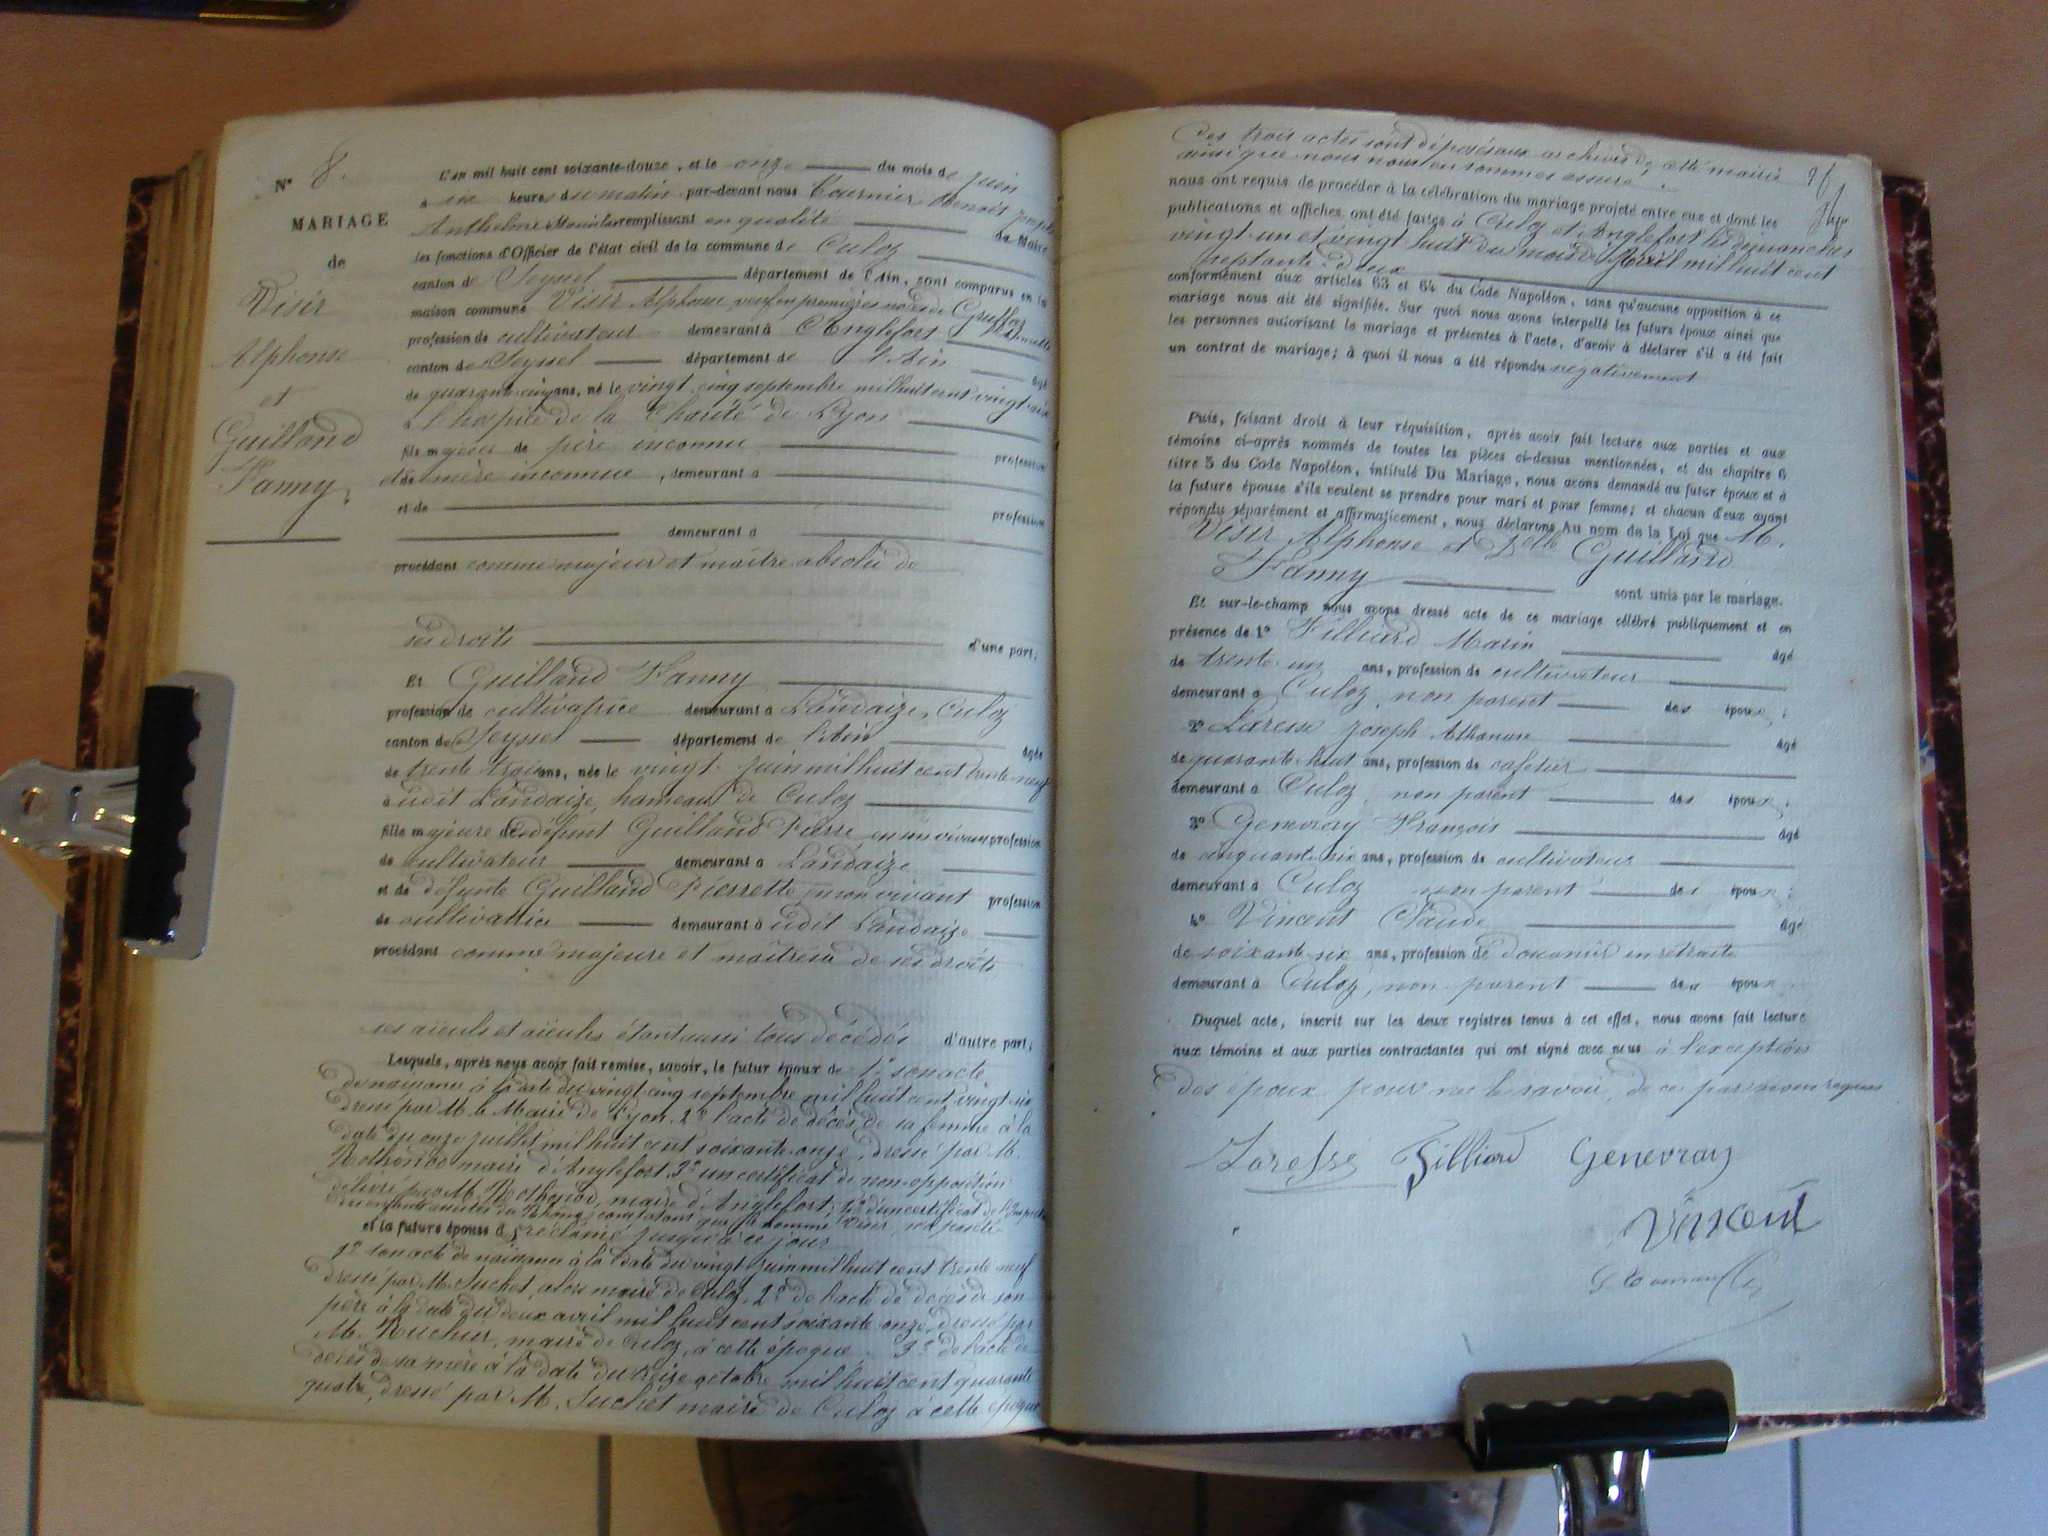 N° 8.
MARIAGE
de
Visir
Alphonse
et
Guilland
Fanny
L'an mil huit cent soixante-douze, et le onze du mois de juin
à six heures du matin par-devant nous Tournier Benoit Joseph
Anthelme Maire remplissant en qualité de Maire
les fonctions d'Officier de l'état civil de la commune de Culoz
canton de Seyssel département de l'Ain, sont comparus en la
maison commune Visir Alphonse, veuf en premières noces de
profession de cultivateur demeurant à Anglefort
canton de Seyssel département de l'Ain âgé
de quarante-cinq ans, né le vingt cinq septembre mil huit cent vingt-six
à l'hospice de la Charité de Lyon
fils majeur de père inconnu profession
et de mère inconnue, demeurant à
et de profession
demeurant à
procédant comme majeur et maître absolu de
ses droits d'une part;
Et Guilland Fanny
profession de cultivatrice demeurant à Landaize, Culoz
canton de Seyssel département de l'Ain âgée
de trente trois ans, née le vingt juin mil huit cent trente-neuf
à udit Landaize, hameau de Culoz
fille majeure de défunt Guilland Pierre en son vivant profession
de cultivateur demeurant à Landaize
et de défunte Guilland Pierrette, en son vivant profession
de cultivatrice demeurant à udit Landaize
procédant comme majeure et maîtresse de ses droits
ses aïeuls et aïeules étant aussi tous décédés d'autre part;
Lesquels, après nous avoir fait remise, savoir, le futur époux de 1° son acte
de naissance à la date du vingt-cinq septembre mil huit cent vingt-six
dressé par M. le Maire de Lyon. 2° l'acte de décès de sa femme à la
date du onze juillet mil huit cent soixante-onze, dressé par M.
Rothonod maire d'Anglefort. 3° un certificat de non-opposition
délivré par M. Rothonod, maire d'Anglefort; 4° d'un certificat de l'Inspecteur
des enfants assistés du Rhône, constatant que le nommé Visir, n'a pas été
et la future épouse d réclamé jusqu'à ce jour
1° son acte de naissance à la date du vingt juin mil huit cent trente-neuf
dressé par M. Suchet, alors maire de Culoz. 2° de l'acte de décès de son
père à la date du deux avril mil huit cent soixante onze, dressé par
M. maire de Culoz, à cette époque. 3° de l'acte de
décès de sa mère à la date du treize octobre mil huit cent quarante
quatre, dressé par M. Suchet maire de Culoz à cette époque
Ces trois actes sont déposés aux archives de cette mairie
ainsi que nous nous en sommes assuré.
nous ont requis de procéder à la célébration du mariage projeté entre eux et dont les
publications et affiches ont été faites à Culoz et Anglefort les dimanches
vingt-un et vingt-huit du mois d'Avril mil huit cent
septante-deux
conformément aux articles 63 et 64 du Code Napoléon, sans qu'aucune opposition à ce
mariage nous ait été signifiée. Sur quoi nous avons interpellé les futurs époux ainsi que
les personnes autorisant le mariage et présentes à l'acte, d'avoir à déclarer s'il a été fait
un contrat de mariage; à quoi il nous a été répondu négativement
Puis, faisant droit à leur réquisition, après avoir fait lecture aux parties et aux
témoins ci-après nommés de toutes les pièces ci-dessus mentionnées, et du chapitre 6
titre 5 du Code Napoléon, intitulé Du Mariage, nous avons demandé au futur époux et à
la future épouse s'ils veulent se prendre pour mari et pour femme; et chacun d'eux ayant
répondu séparément et affirmativement, nous déclarons Au nom de la Loi que M.
Visir Alphonse et Delle Guilland
Fanny sont unis par le mariage.
Et sur-le-champ nous avons dressé acte de ce mariage célébré publiquement et en
présence de 1° Filliard Marin âgé
de trente-un ans, profession de cultivateur
demeurant à Culoz, non parent des époux;
2° Laresse Joseph Athanase âgé
de quarante-huit ans, profession de cafetier
demeurant à Culoz, non parent des époux;
3° Genevray François âgé
de cinquante-six ans, profession de cultivateur
demeurant à Culoz non parent des époux;
4° Vincent Claude âgé
de soixante-six ans, profession de douanier en retraite
demeurant à Culoz, non parent des époux
Duquel acte, inscrit sur les deux registres tenus à cet effet, nous avons fait lecture
aux témoins et aux parties contractantes qui ont signé avec nous à l'exception
des époux pour ne le savoir, de ce par nous requis
Laresse Filliard Genevray
Vincent